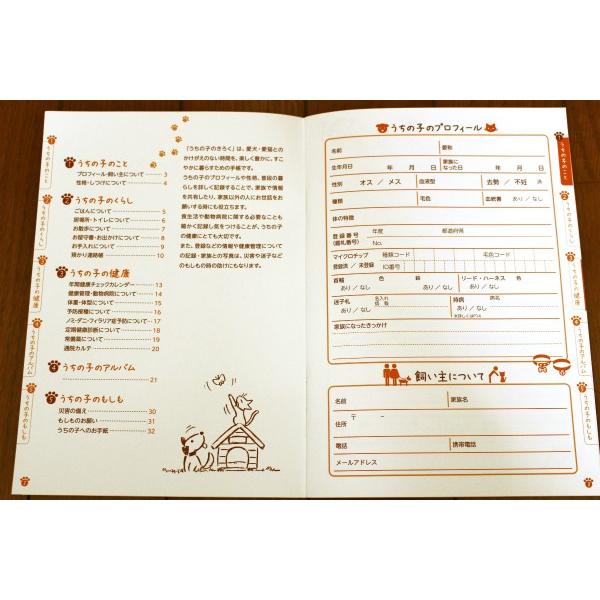 1 うちの子のこと
プロフィール・飼い主について 3
性格・しつけについて 4
2 うちの子のくらし
ごはんについて 5
居場所・トイレについて 6
お散歩について 7
お留守番・お出かけについて 8
お手入れについて 9
預かり連絡帳 10
3 うちの子の健康
年間健康チェックカレンダー 13
健康管理・動物病院について 14
体重・体型について 15
予防接種について 16
ノミ・ダニ・フィラリア症予防について 17
定期健康診断について 18
常備薬について 19
通院カルテ 20
4 うちの子のアルバム
21
5 うちの子のもしも
災害の備え 30
もしものお願い 31
うちの子へのお手紙 32
「うちの子のきろく」は、愛犬・愛猫との
かけがえのない時間を、楽しく豊かに、すこ
やかに暮らすための手帳です。
うちの子のプロフィールや性格、普段の
暮らしを詳しく記録することで、家族で情報
を共有したり、家族以外の人にお世話をお
願いする時にも役立ちます。
食生活や動物病院に関する必要なことも
細かく記録し気をつけることが、うちの子
の健康にとても大切です。
また、登録などの情報や健康管理について
の記録・家族との写真は、災害や迷子など
のもしもの時の助けにもなります。
1 うちの子のこと
2 うちの子のくらし
3 うちの子の健康
4 うちの子のアルバム
5 うちの子のもしも
2
うちの子のプロフィール
名前 愛称
生年月日 年 月 日 家族になった日 年 月 日
性別 オス / メス 血液型 去勢 / 不妊 済
種類 毛色 血統書 あり / なし
体の特徴
登録番号(鑑札番号) 年度 都道府県
No.
マイクロチップ 種類コード 毛色コード
登録済 / 未登録 ID番号
首輪 色 柄 リード・ハーネス 色 柄
あり / なし あり / なし
迷子札 名入れ情報 持病 病名
あり / なし あり / なし
家族になったきっかけ
飼い主について
名前 家族名
住所 〒 －
電話 携帯電話
メールアドレス
1 うちの子のこと
2 うちの子のくらし
3 うちの子の健康
4 うちの子のアルバム
5 うちの子のもしも
3